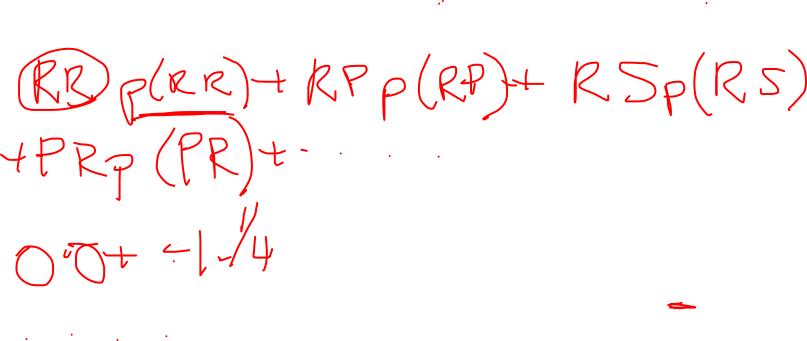 RR p(RR) + RP p(RP) + RS p(RS)
+ PR p(PR) + . . . .
0·0 + -1·1/4